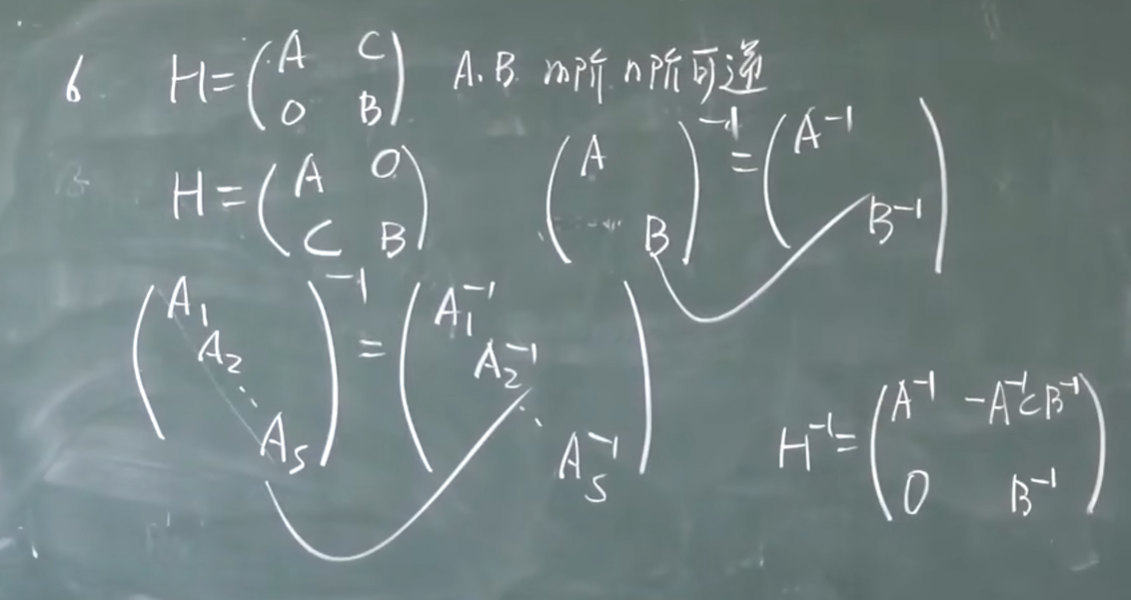 6 H=(A C; O B) A.B. m阶 n阶可逆
H=(A O; C B) (A B)⁻¹=(A⁻¹ B⁻¹)
(A₁ A₂ ⋱ Aₛ)⁻¹=(A₁⁻¹ A₂⁻¹ ⋱ Aₛ⁻¹)
H⁻¹=(A⁻¹ -A⁻¹CB⁻¹; O B⁻¹)